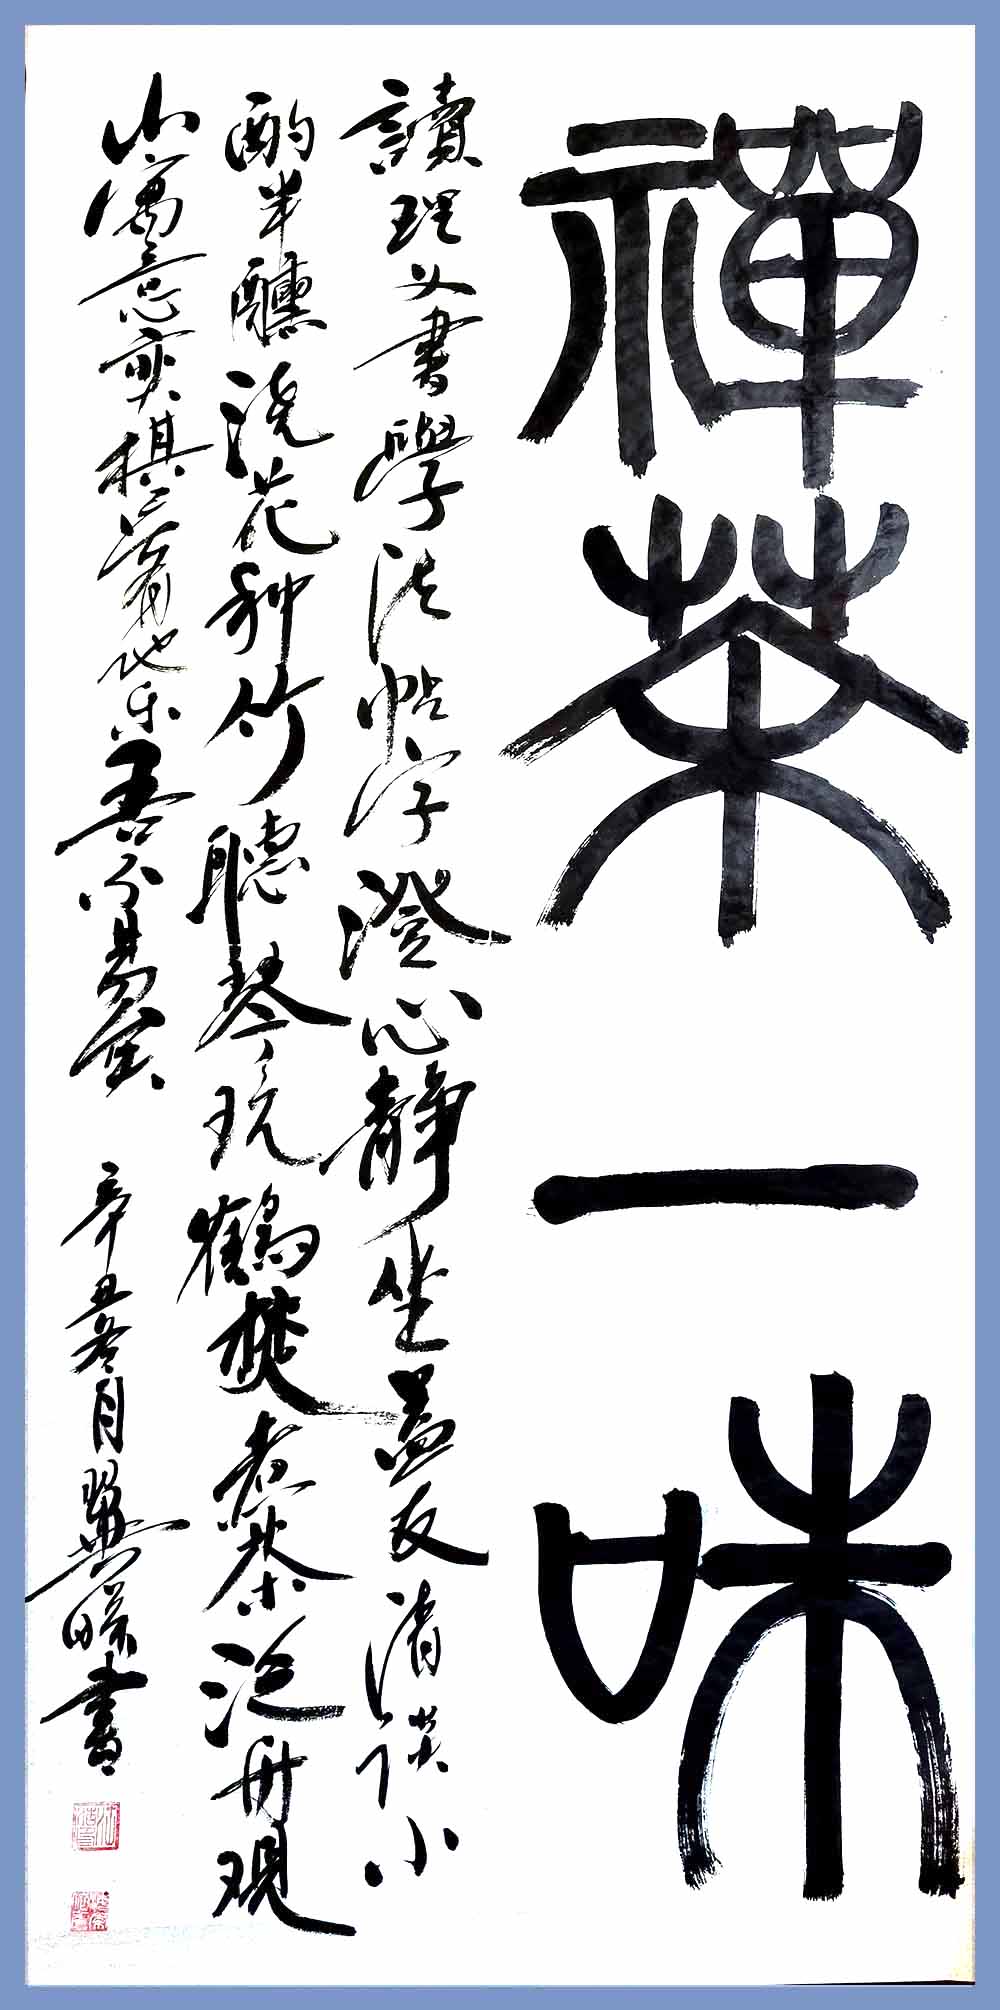 禪茶一味
讀理义書學法帖字澄心靜坐益友清談小
酌半醺澆花种竹聽琴玩鶴焚煮茶泛舟观
山寓意奕棋雖有他乐吾不易矣 辛丑冬月翼書